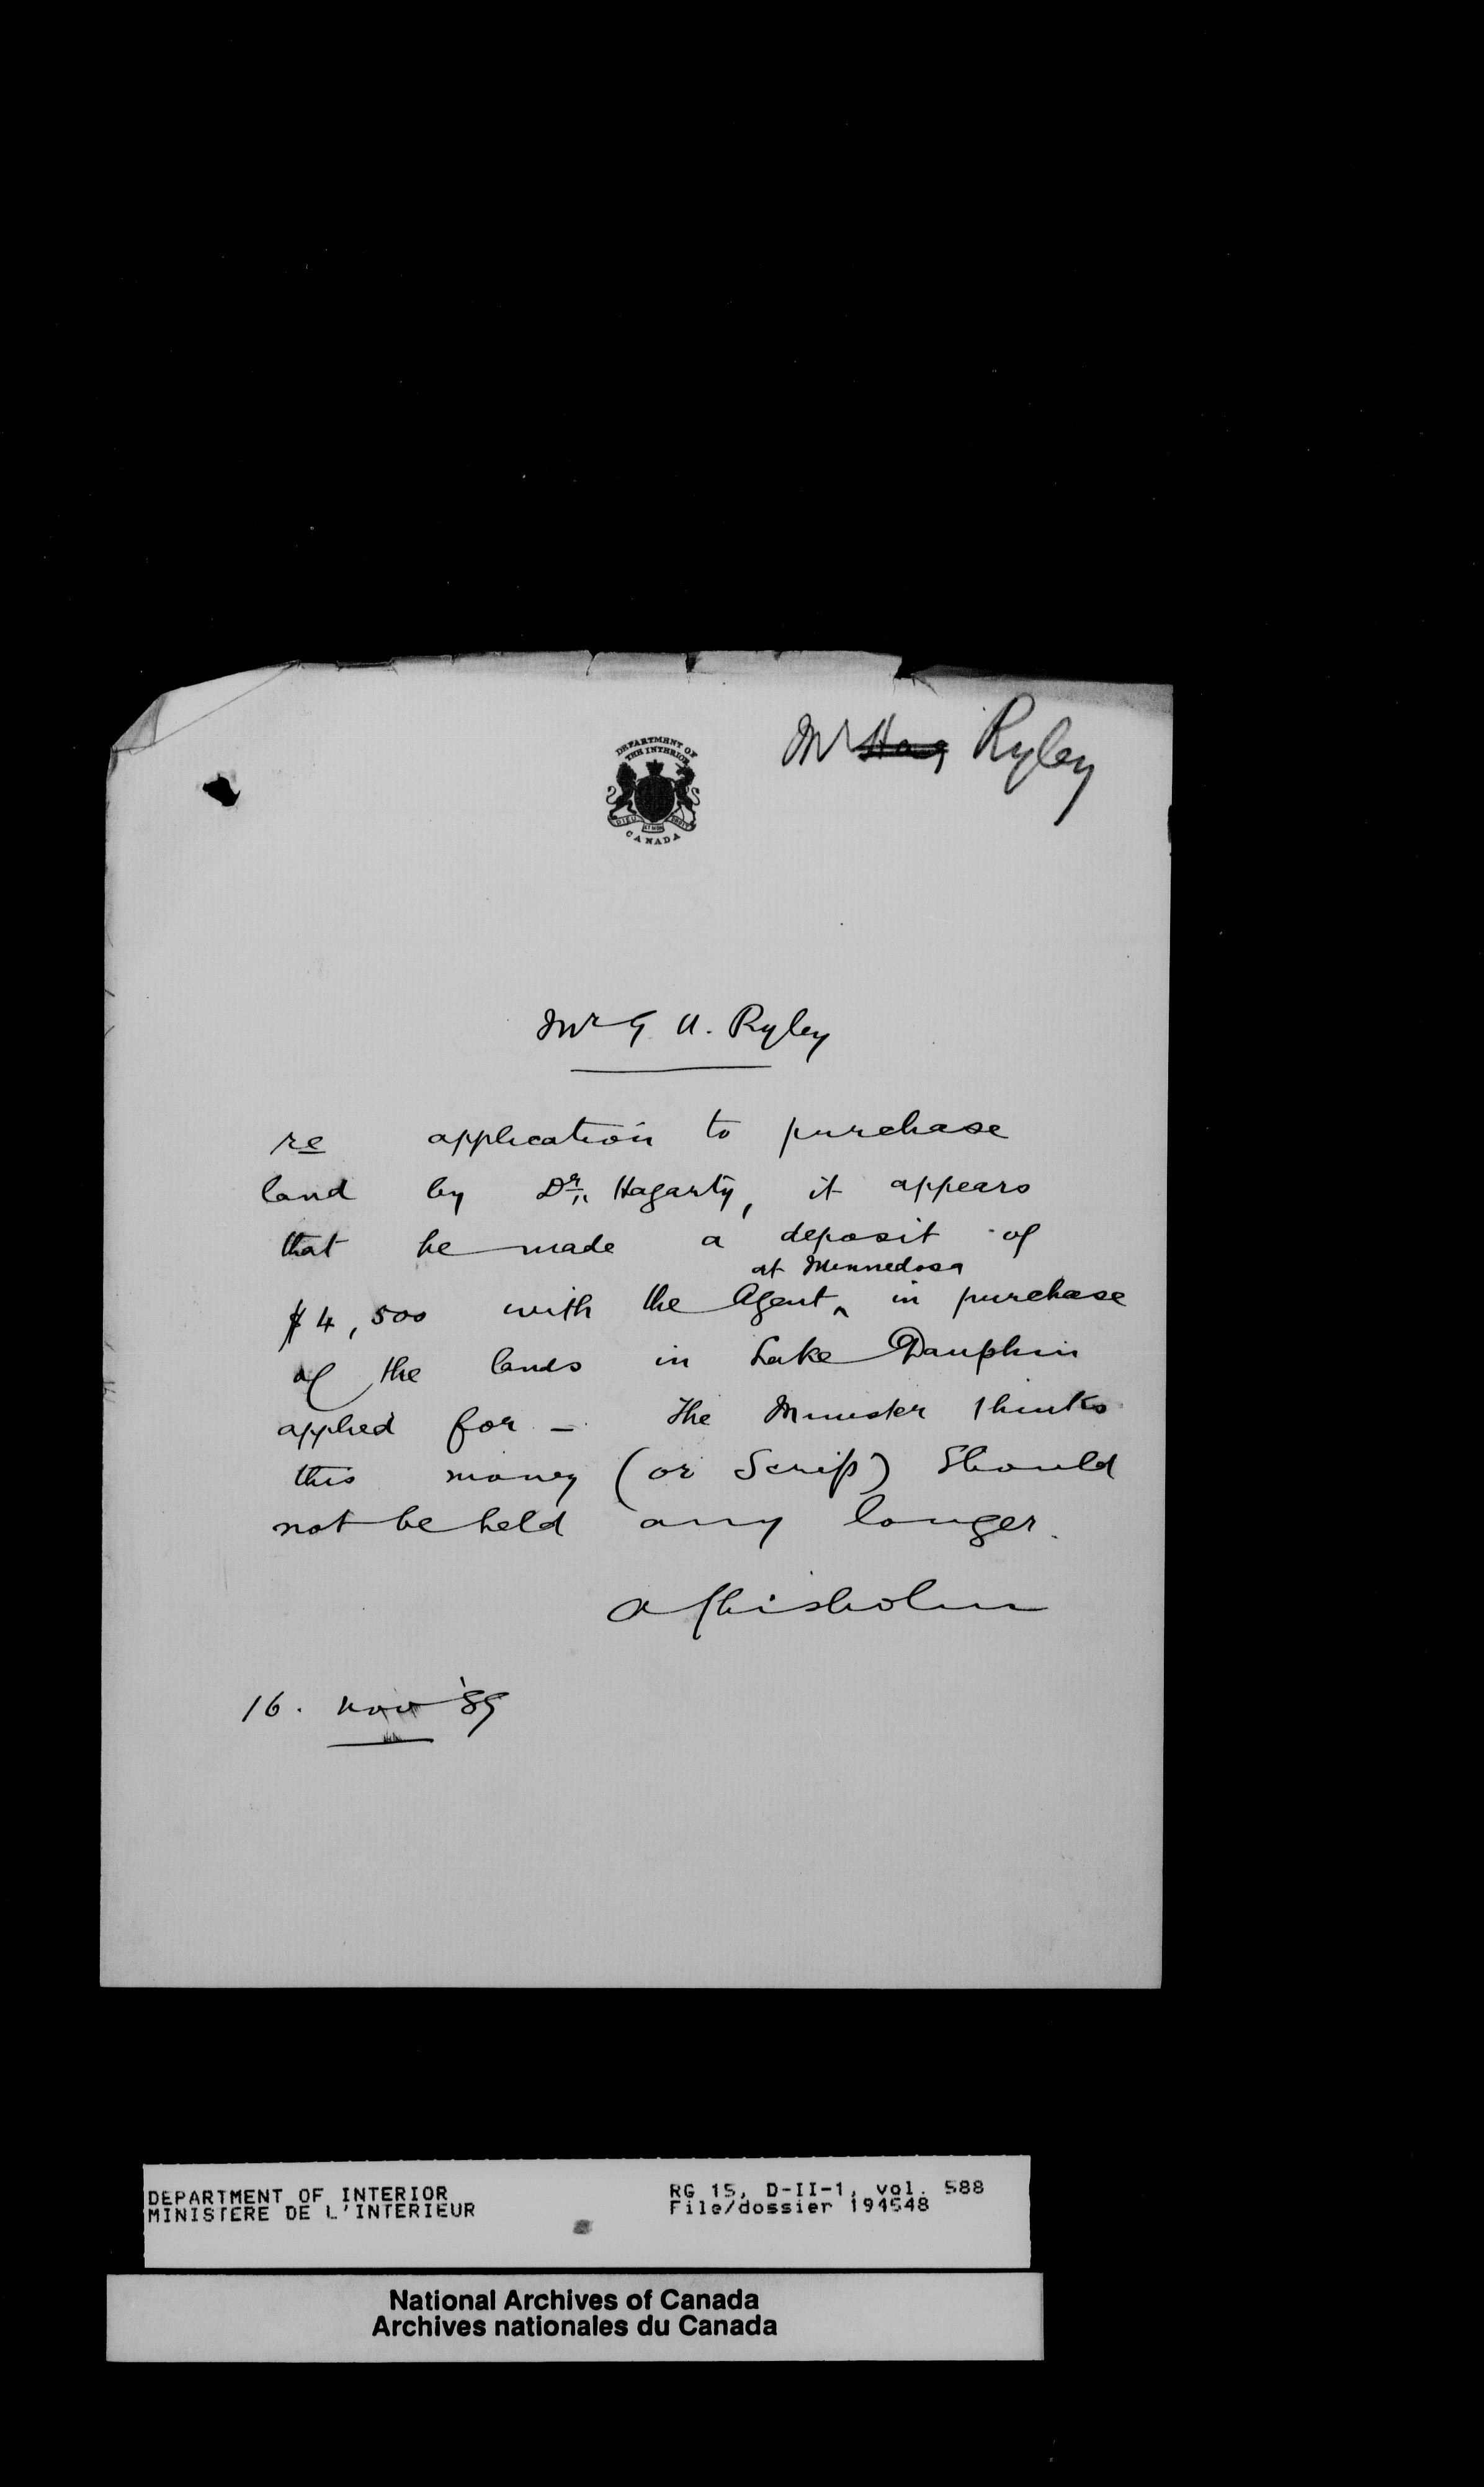 Mr Hag Ryley
DEPARTMENT OF
THE INTERIOR
DIEU ET MON DROIT
CANADA
Mr G. U. Ryley
re application to purchase
land by Dr. Hagarty, it appears
that he made a deposit of
at Minnedosa
$4,500 with the Agent ^ in purchase
of the lands in Lake Dauphin
applied for - The Minister thinks
this money (or Scrip) Should
not be held any longer.
A Chisholm
16. Nov '89
DEPARTMENT OF INTERIOR
MINISTERE DE L'INTERIEUR
RG 15, D-II-1, vol. 588
File/dossier 194548
National Archives of Canada
Archives nationales du Canada